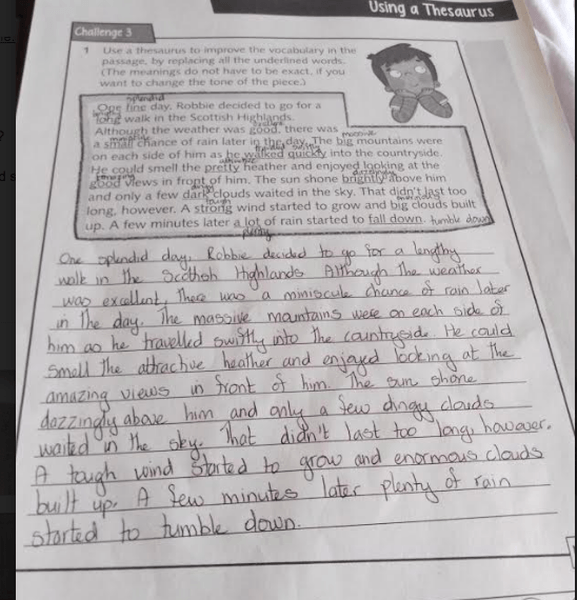 Using a Thesaurus
Challenge 3
1 Use a thesaurus to improve the vocabulary in the
passage, by replacing all the underlined words.
(The meanings do not have to be exact, if you
want to change the tone of the piece.)
splendid
One fine day, Robbie decided to go for a
long walk in the Scottish Highlands.
Although the weather was good, there was
massive
a small chance of rain later in the day. The big mountains were
on each side of him as he walked quickly into the countryside.
He could smell the pretty heather and enjoyed looking at the
good views in front of him. The sun shone brightly above him
and only a few dark clouds waited in the sky. That didn't last too
tough
long, however. A strong wind started to grow and big clouds built
up. A few minutes later a lot of rain started to fall down. tumble down
plenty
One splendid day, Robbie decided to go for a lengthy
walk in the Scottish Highlands Although the weather
was excellent, there was a miniscule chance of rain later
in the day. The massive mountains were on each side of
him as he travelled swiftly into the countryside. He could
smell the attractive heather and enjoyed looking at the
amazing views in front of him. The sun shone
dazzingly above him and only a few dingy clouds
waited in the sky. That didn't last too long, however.
A tough wind started to grow and enormous clouds
built up. A few minutes later plenty of rain
started to tumble down.